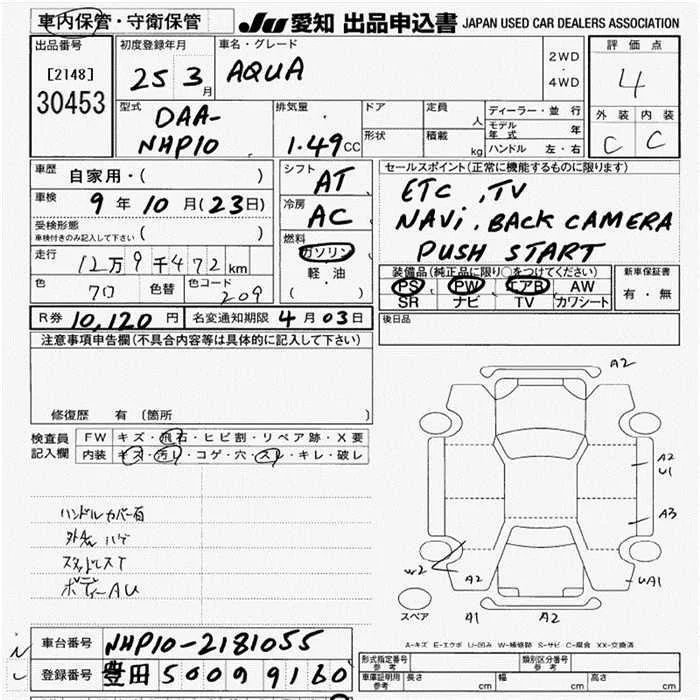 車内保管・守衛保管
JU 愛知 出品申込書 JAPAN USED CAR DEALERS ASSOCIATION
出品番号
[2148]
30453
初度登録年月
25 3 月
車名・グレード
AQUA
2WD
・
4WD
評価点
4
外装 内装
C C
型式
DAA-
NHP10
排気量
1.49 CC
ドア
形状
定員 人
積載 kg
ディーラー・並行
モデル年式 年
ハンドル 左・右
車歴 自家用・( )
車検 9 年 10 月 (23日)
受検形態
車検付きのみ記入して下さい ( )
走行 12万9千472 km
色 クロ 色替 色コード 209
シフト AT
冷房 AC
燃料
ガソリン
・
軽・油
( )
セールスポイント(正常に機能するものに限ります)
ETC , TV
NAVi . BACK CAMERA
PUSH START
装備品(純正品に限り○をつけてください)
PS PW エアB AW
SR ナビ TV カワシート
新車保証書
有・無
R券 10,120 円 名変通知期限 4 月 03 日
後日品
注意事項申告欄(不具合内容等は具体的に記入して下さい)
修復歴 有 〔箇所 〕
検査員
記入欄
FW キズ・飛石・ヒビ割・リペア跡・X要
内装 キズ・汚レ・コゲ・穴・スレ・キレ・破レ
ハンドルカバー有
外装 ハゲ
スタッドレスT
ボディーAU
A2
A2
U1
A3
W2
A2
UA1
A1
A2
スペア
A-キズ E-エクボ U-凹み W-補修跡 S-サビ C-腐食 XX-交換済
車台番号 NHP10-2181055
登録番号 豊田 500 り 9160
形式指定番号
参考
類別区分番号
参考
車庫証明用
参考
長さ cm 幅 cm 高さ cm